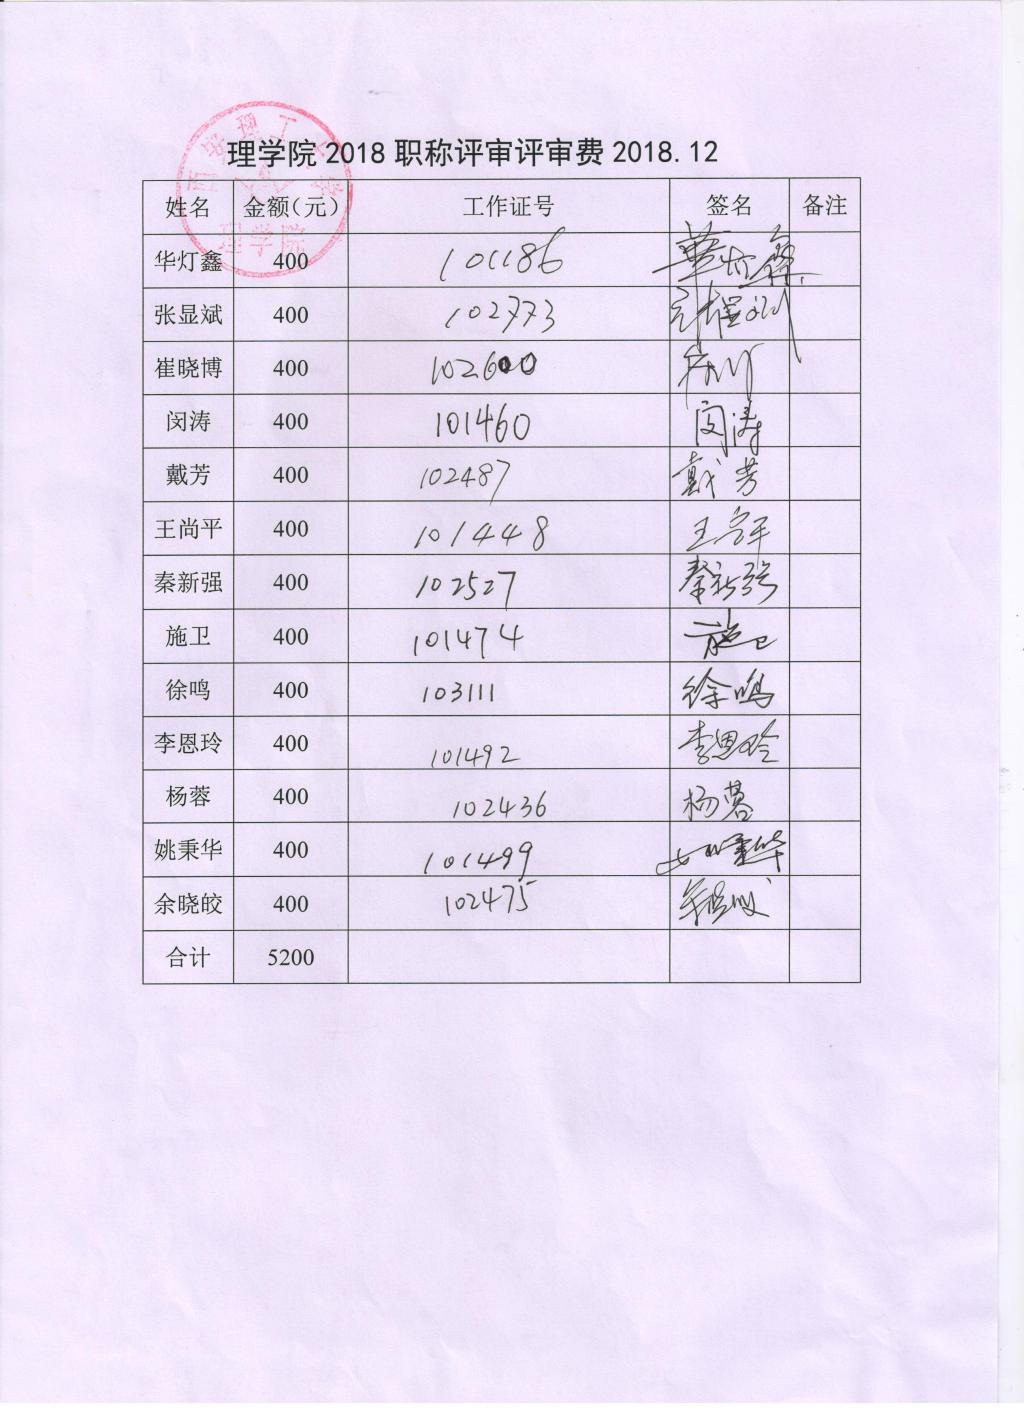 理学院2018职称评审评审费2018.12
理学院
姓名 金额(元) 工作证号 签名 备注
华灯鑫 400 101186 华灯鑫
张显斌 400 102773
崔晓博 400 102600
闵涛 400 101460 闵涛
戴芳 400 102487 戴芳
王尚平 400 101448 王尚平
秦新强 400 102527 秦新强
施卫 400 101474 施卫
徐鸣 400 103111 徐鸣
李恩玲 400 101492 李恩玲
杨蓉 400 102436 杨蓉
姚秉华 400 101499 姚秉华
余晓皎 400 102475
合计 5200